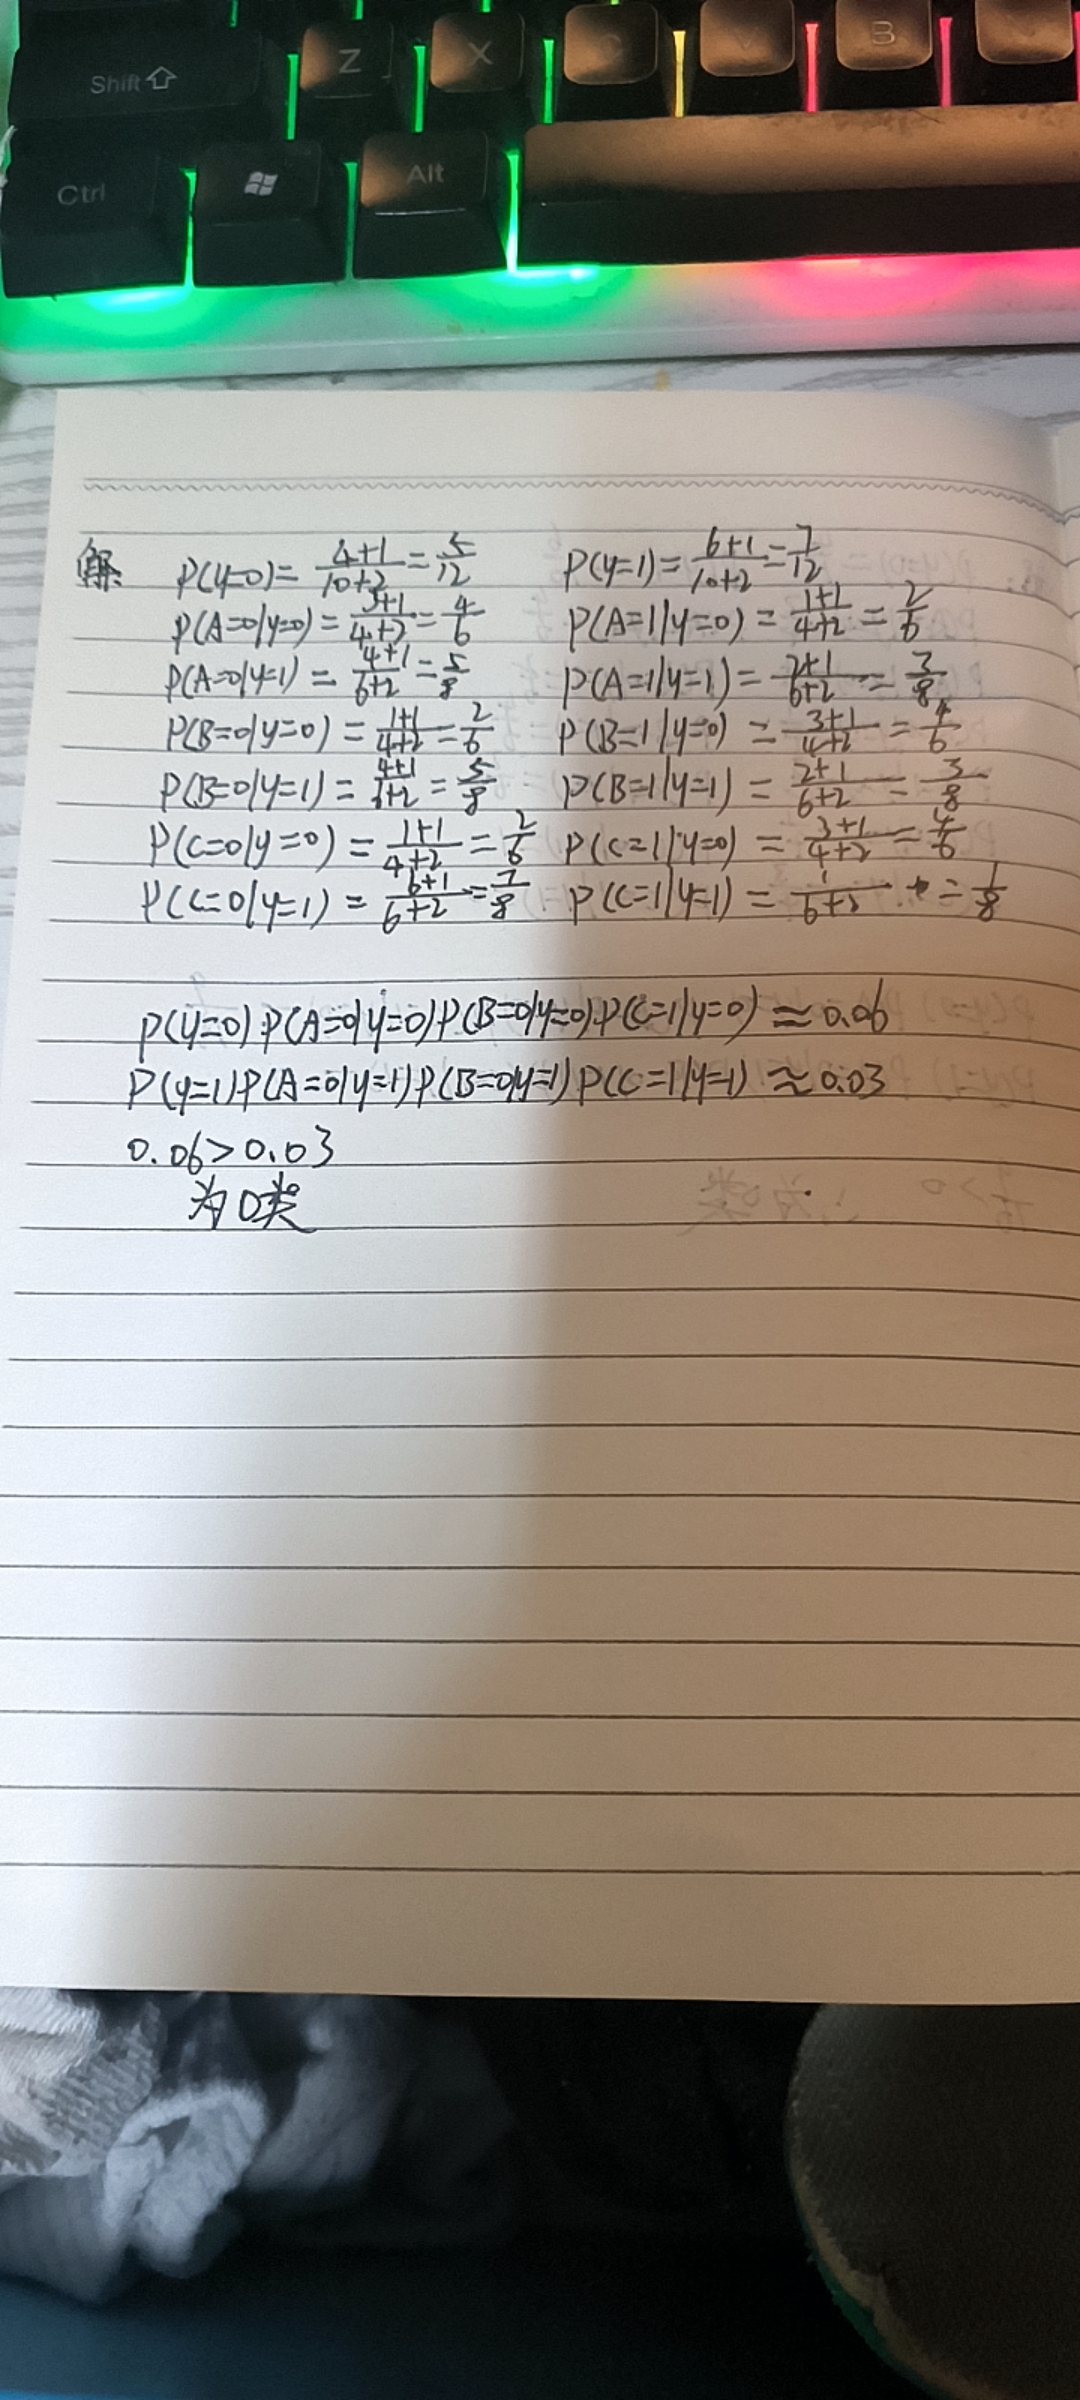 Z X C V B
Shift
Ctrl Alt
解 P(y=0)= (4+1)/(10+2) = 5/12 P(y=1)= (6+1)/(10+2) = 7/12
P(A=0|y=0) = (3+1)/(4+2) = 4/6 P(A=1|y=0) = (1+1)/(4+2) = 2/6
P(A=0|y=1) = (4+1)/(6+2) = 5/8 P(A=1|y=1) = (2+1)/(6+2) = 3/8
P(B=0|y=0) = (1+1)/(4+2) = 2/6 P(B=1|y=0) = (3+1)/(4+2) = 4/6
P(B=0|y=1) = (4+1)/(+2) = 5/8 P(B=1|y=1) = (2+1)/(6+2) = 3/8
P(C=0|y=0) = (1+1)/(4+2) = 2/6 P(C=1|y=0) = (3+1)/(4+2) = 4/6
P(C=0|y=1) = (6+1)/(6+2) = 7/8 P(C=1|y=1) = 1/(6+2) = 1/8
P(y=0)P(A=0|y=0)P(B=0|y=0)P(C=1|y=0) ≈ 0.06
P(y=1)P(A=0|y=1)P(B=0|y=1)P(C=1|y=1) ≈ 0.03
0.06>0.03
为0类